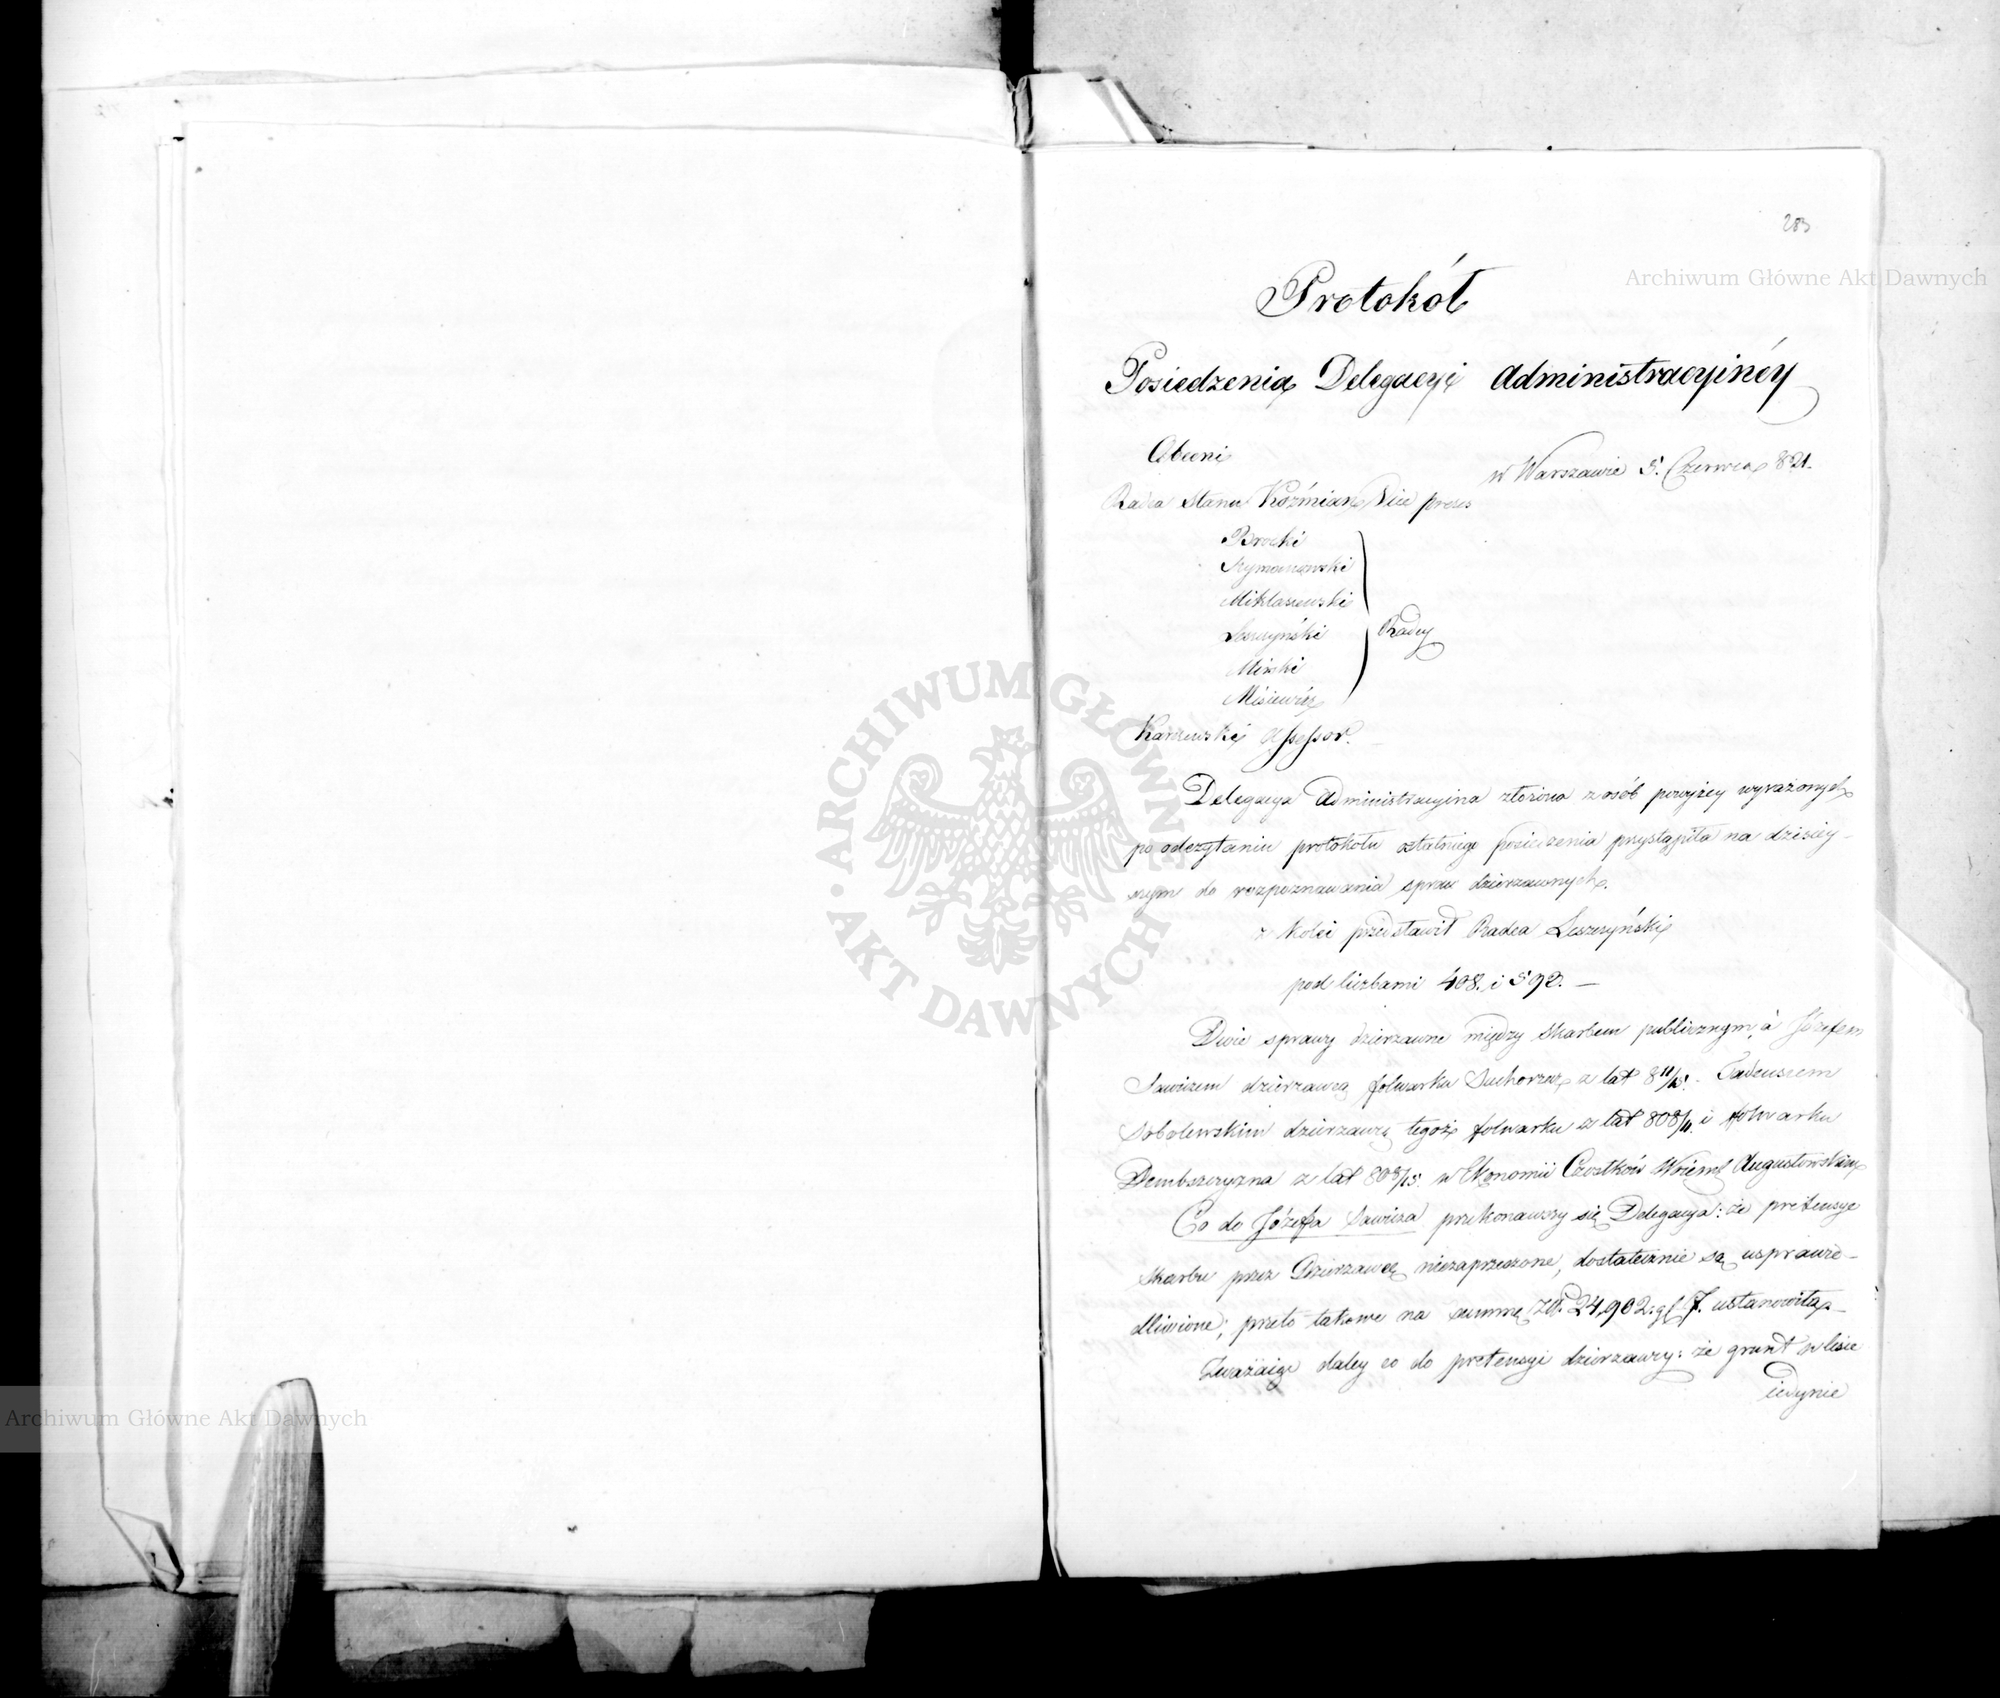 283
Archiwum Główne Akt Dawnych
Protokół
Posiedzenia Delegacyi Administracyinéy
Obecni
w Warszawie 5. Czerwca 821.
Radca Stanu Koźmian Vice prezes
Brocki
Szymanowski
Miklaszewski
Leszczyński
Miński
Misiewicz
Radcy
Karszewski Assessor.
Delegacya Administracyina złożona z osób powyżey wyrażonych
po odczytaniu protokołu ostatniego posiedzenia przystąpiła na dzisiey-
szym do rozpoznawania spraw dzierzawnych.
z kolei przedstawił Radca Leszczyński
pod liczbami 408. i 592. —
Dwie sprawy dzierzawne między Skarbem publicznym, a Józefem
Sawiczem dzierzawcą folwarku Suchorzec z lat 811/15. Tadeuszem
Sobolewskim dzierzawcą tegoż folwarku z lat 808/11. i folwarku
Dembszczyzna z lat 808/15. w Ekonomii Czostków Woiewd. Augustowskiey
Co do Józefa Sawicza przekonawszy się Delegacya: że pretensye
Skarbu przez Dzierzawcę niezaprzeczone, dostatecznie są usprawie-
dliwione; przeto takowe na summę Złł. 24,902: g. 7. ustanowiła.
Zważaiąc daley co do pretensyi dzierzawcy: że grunt w lesie
iedynie
ARCHIWUM GŁÓWNE AKT DAWNYCH
Archiwum Główne Akt Dawnych